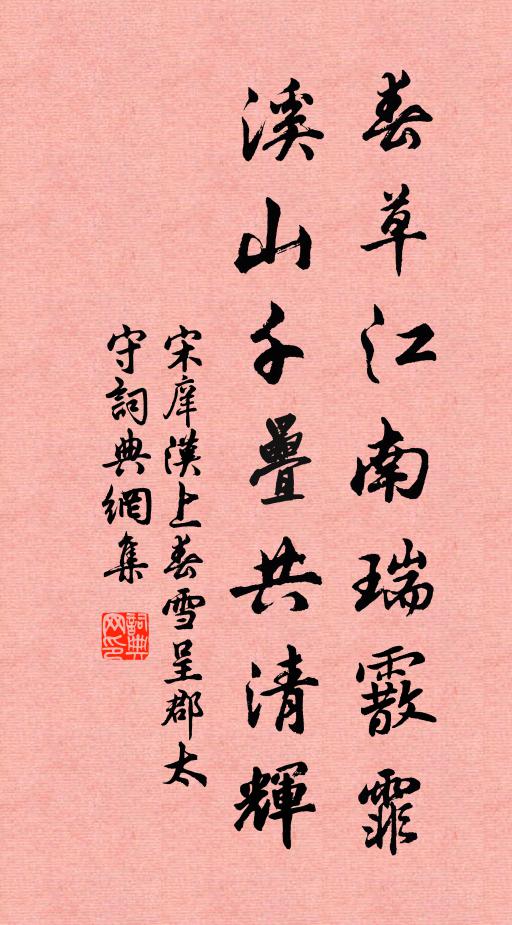 春草江南瑞霰霏
溪山千疊共清輝
宋庠漢上春雪呈郡太
守詞典網集
詞典
网印